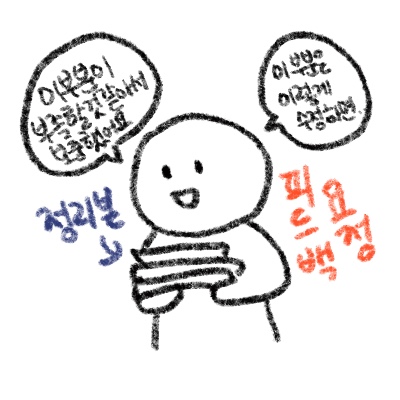 이부분이
부족한것같아서
보충했어요
이부분은
이렇게
수정하면
정리본
피드백
요정